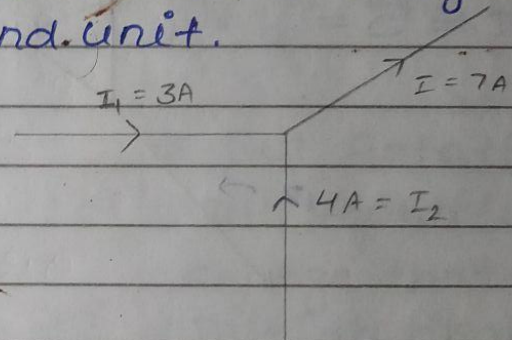 nd. unit.
I₁ = 3A
I = 7A
4A = I₂